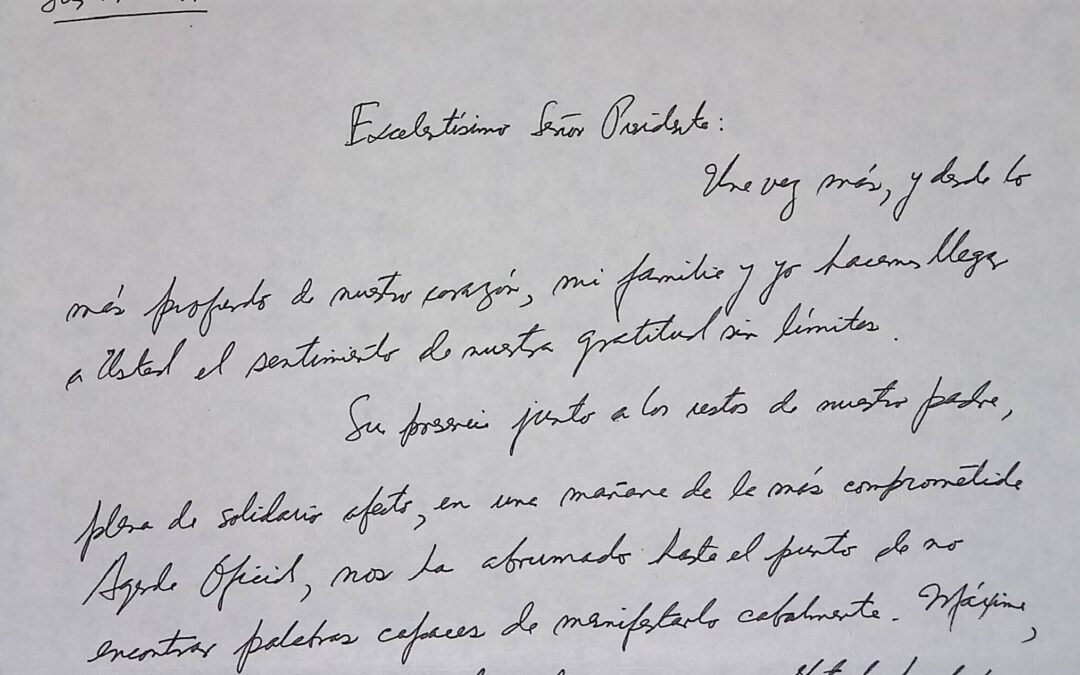 Excelentísimo Señor Presidente:
Una vez más, y desde lo
más profundo de nuestro corazón, mi familia y yo hacemos llegar
a Usted el sentimiento de nuestra gratitud sin límites.
Su presencia junto a los restos de nuestro padre,
plena de solidario afecto, en una mañana de la más comprometida
Agenda Oficial, nos ha abrumado hasta el punto de no
encontrar palabras capaces de manifestarlo cabalmente. Máxime,